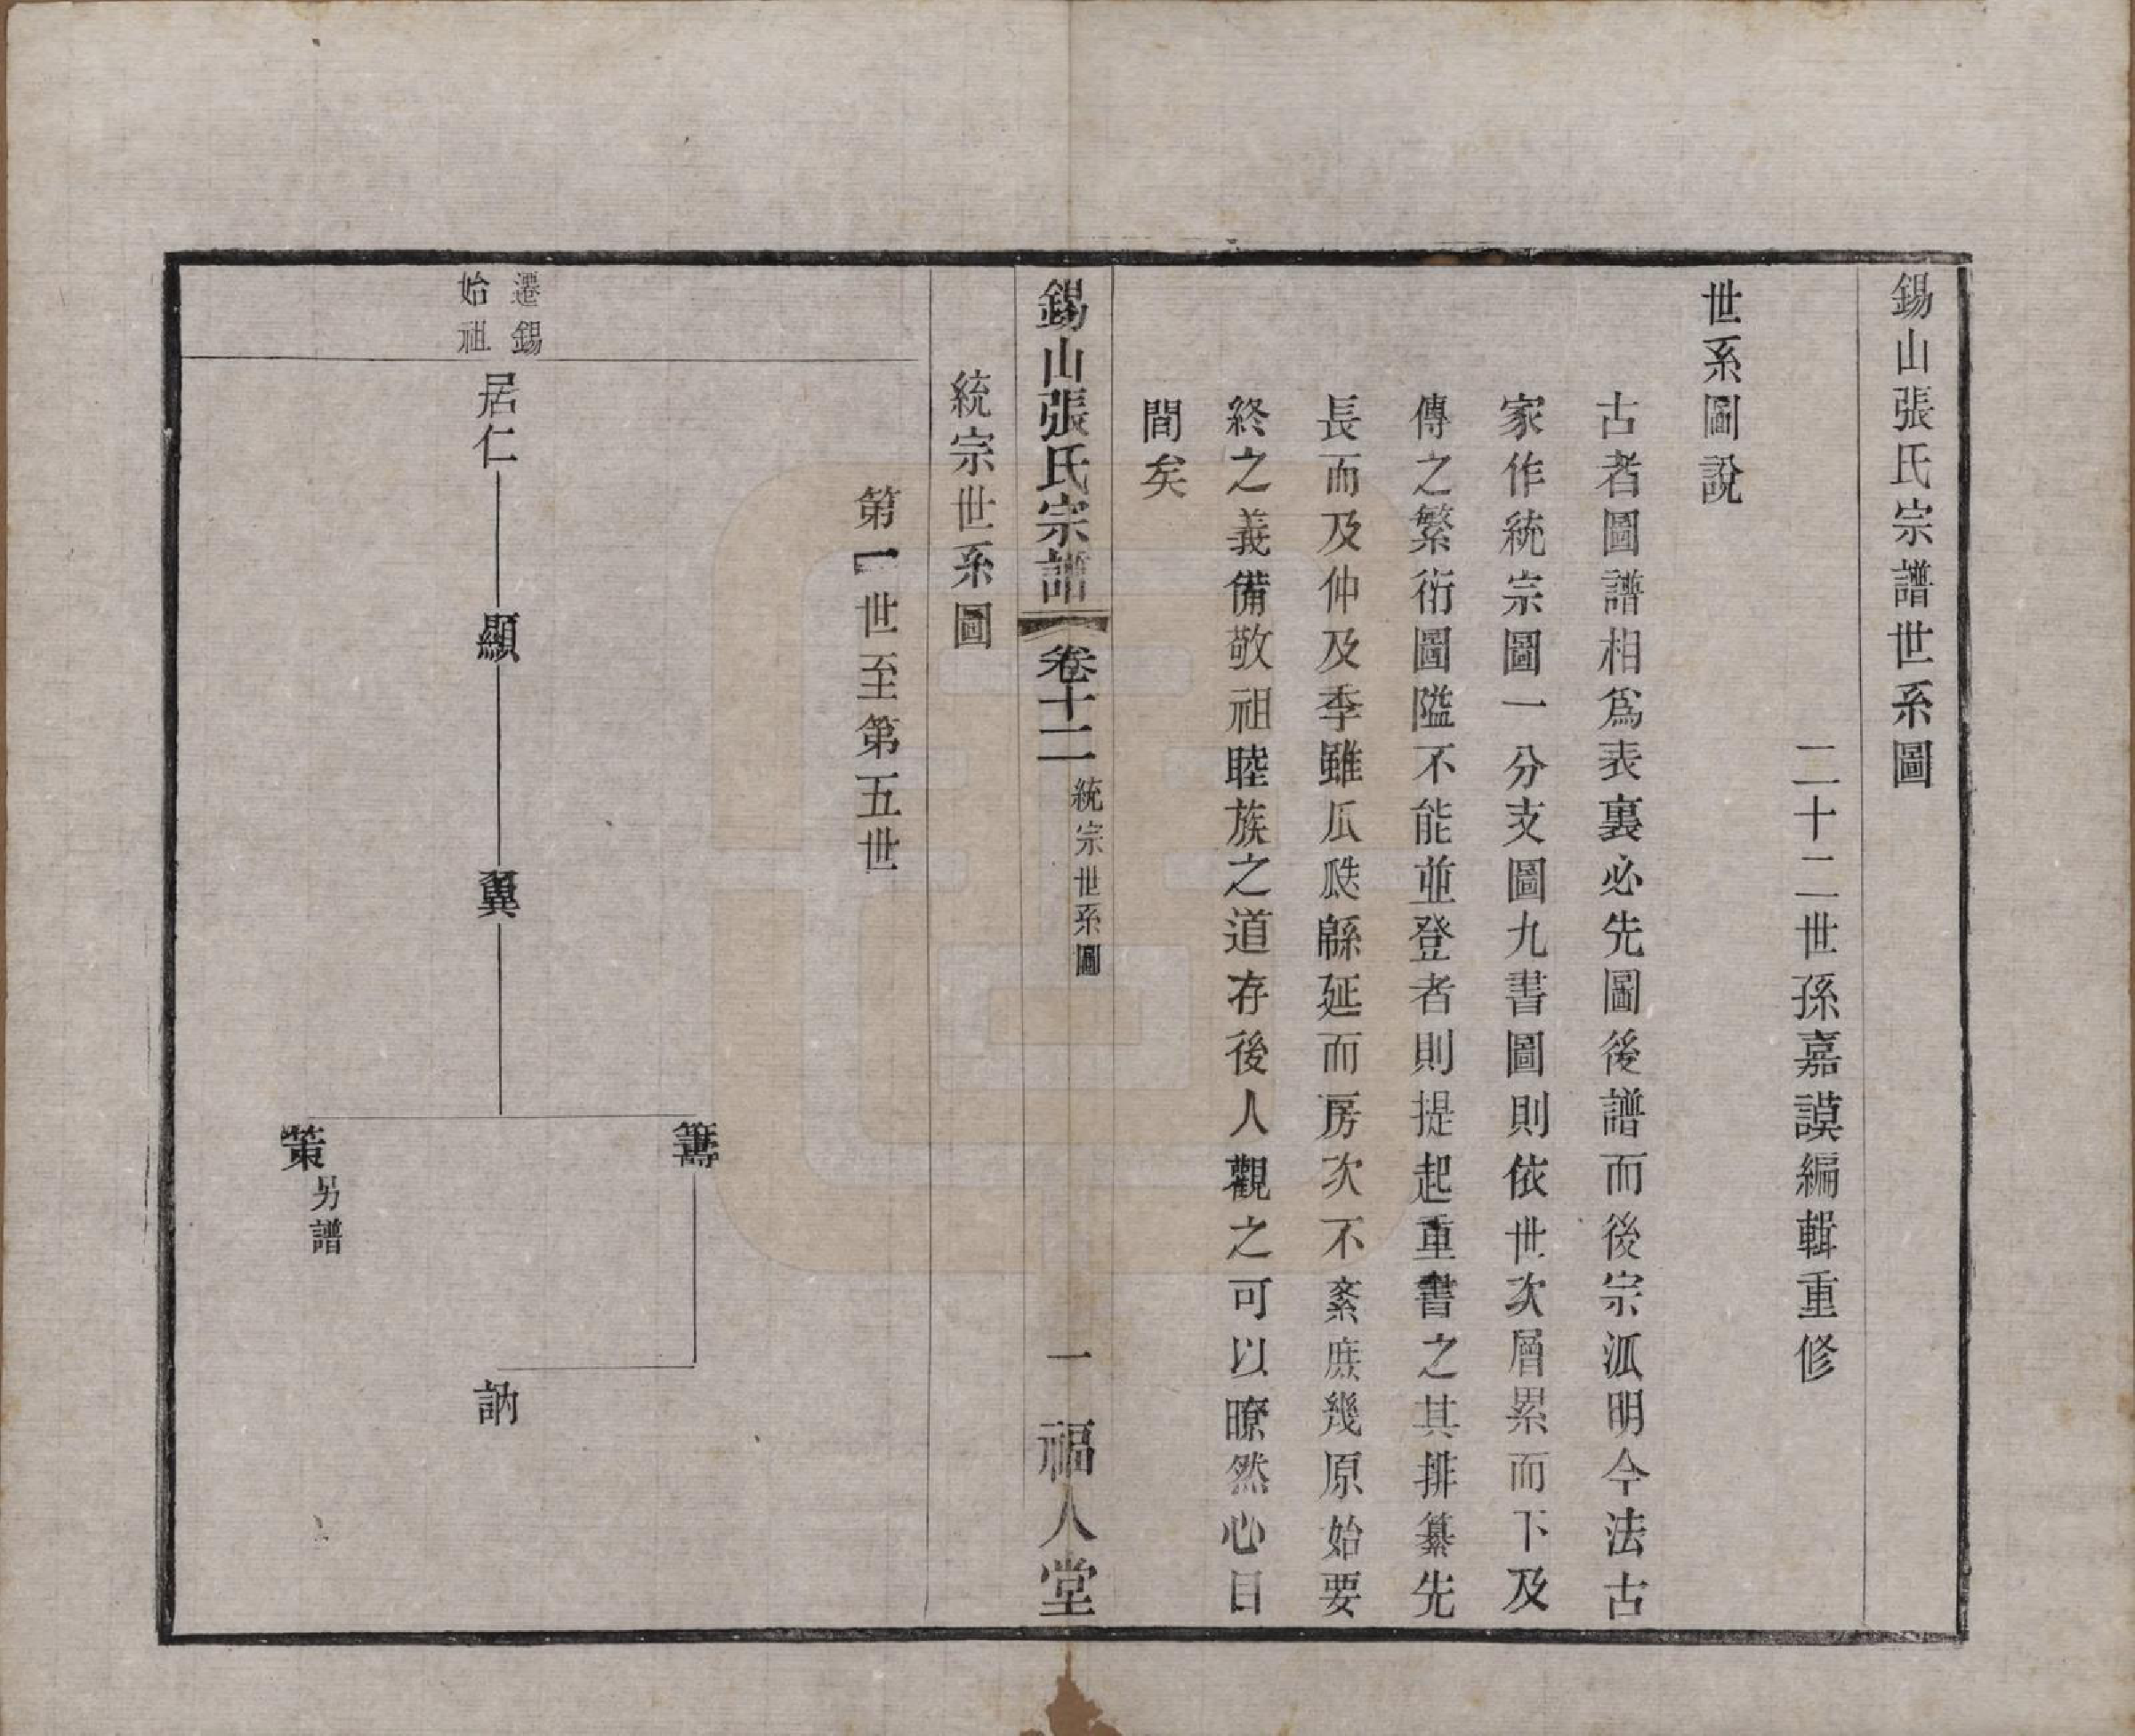 錫山張氏宗譜世系圖
二十二世孫嘉謨編輯重修
世系圖說
古者圖譜相爲表裏必先圖後譜而後宗派明今法古
家作統宗圖一分支圖九書圖則依世次層累而下及
傳之繁衍圖隘不能並登者則提起重書之其排纂先
長而及仲及季雖瓜瓞緜延而房次不紊庶幾原始要
終之義備敬祖睦族之道存後人觀之可以暸然心目
間矣
錫山張氏宗譜 卷十二 統宗世系圖 一 福人堂
統宗世系圖
第一世至第五世
遷錫
始祖
居仁
顯
翼
策 另譜
訥